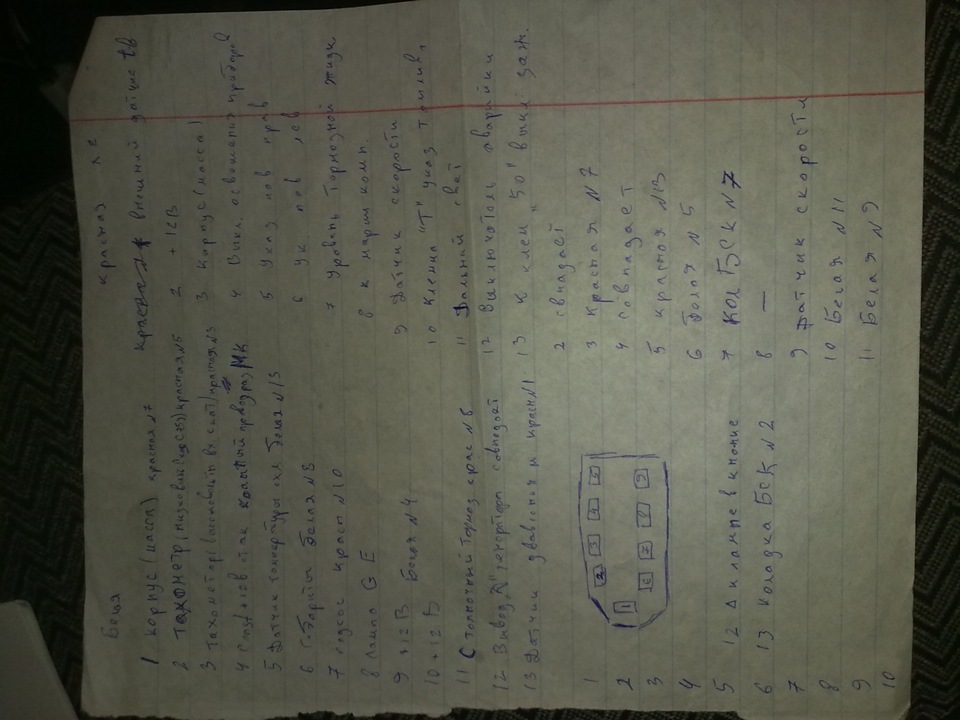 Белая
1 корпус (масса) красная №7
2 тахометр (низковольт вход(253) красная №5
3 тахометр (высоковольт вх сигн) красная №3
4 +12в МК
5 Датчик температуры охл белая №13
6 Габариты белая №8
7 подсос красн №10
8 Лампа GE
9 +12В Белая №4
10 +12В
11 Стояночный тормоз крас №8
12 Вывод "Д" генератора совпадает
13 Датчик давления м красн №1
красная
внешний датчик tв
2 +12В
3 Корпус (масса)
4 Выкл. освещения приборов
5 Указ пов прав
6 Ук пов лев
7 Уровень тормозной жидк
8 к марш комп.
9 Датчик скорости
10 клемма "Т" указ топлива
11 Дальний свет
12 Выключатель аварийки
13 К клем "50" выкл заж.
1
2
3
4
5
6
7
8
9
10
1 2 3 4 5
6 7 8 9
12 Д к лампе в кнопке
13 Колодка БСК №2
2 совпадает
3 красная №7
4 совпадает
5 красная №13
6 белая №5
7 Кол БСК №7
8 —
9 Датчик скорости
10 Белая №11
11 Белая №9